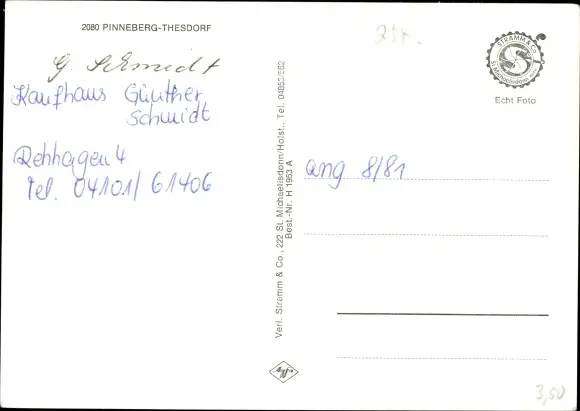 2080 PINNEBERG-THESDORF
G. Schmidt
Kaufhaus Günther
Schmidt
Rehhagen 4
Tel. 04101/61406
Verl. Stramm & Co., 222 St. Michaelisdonn/Holst., Tel. 04853/562
Best.-Nr. H 1953 A
STRAMM & Co
St. Michaelisdonn
Echt Foto
ang 8/81
3,50